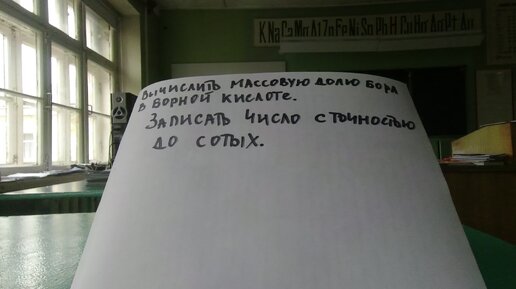 K Na Ca Mg Al Zn Fe Ni Sn Pb H Cu Hg Ag Pt Au
Вычислить массовую долю бора
в борной кислоте.
Записать число с точностью
до сотых.